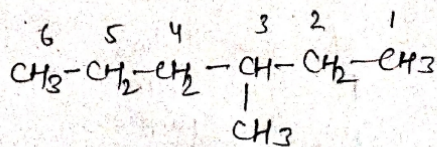 6 5 4 3 2 1
CH3-CH2-CH2-CH-CH2-CH3
CH3